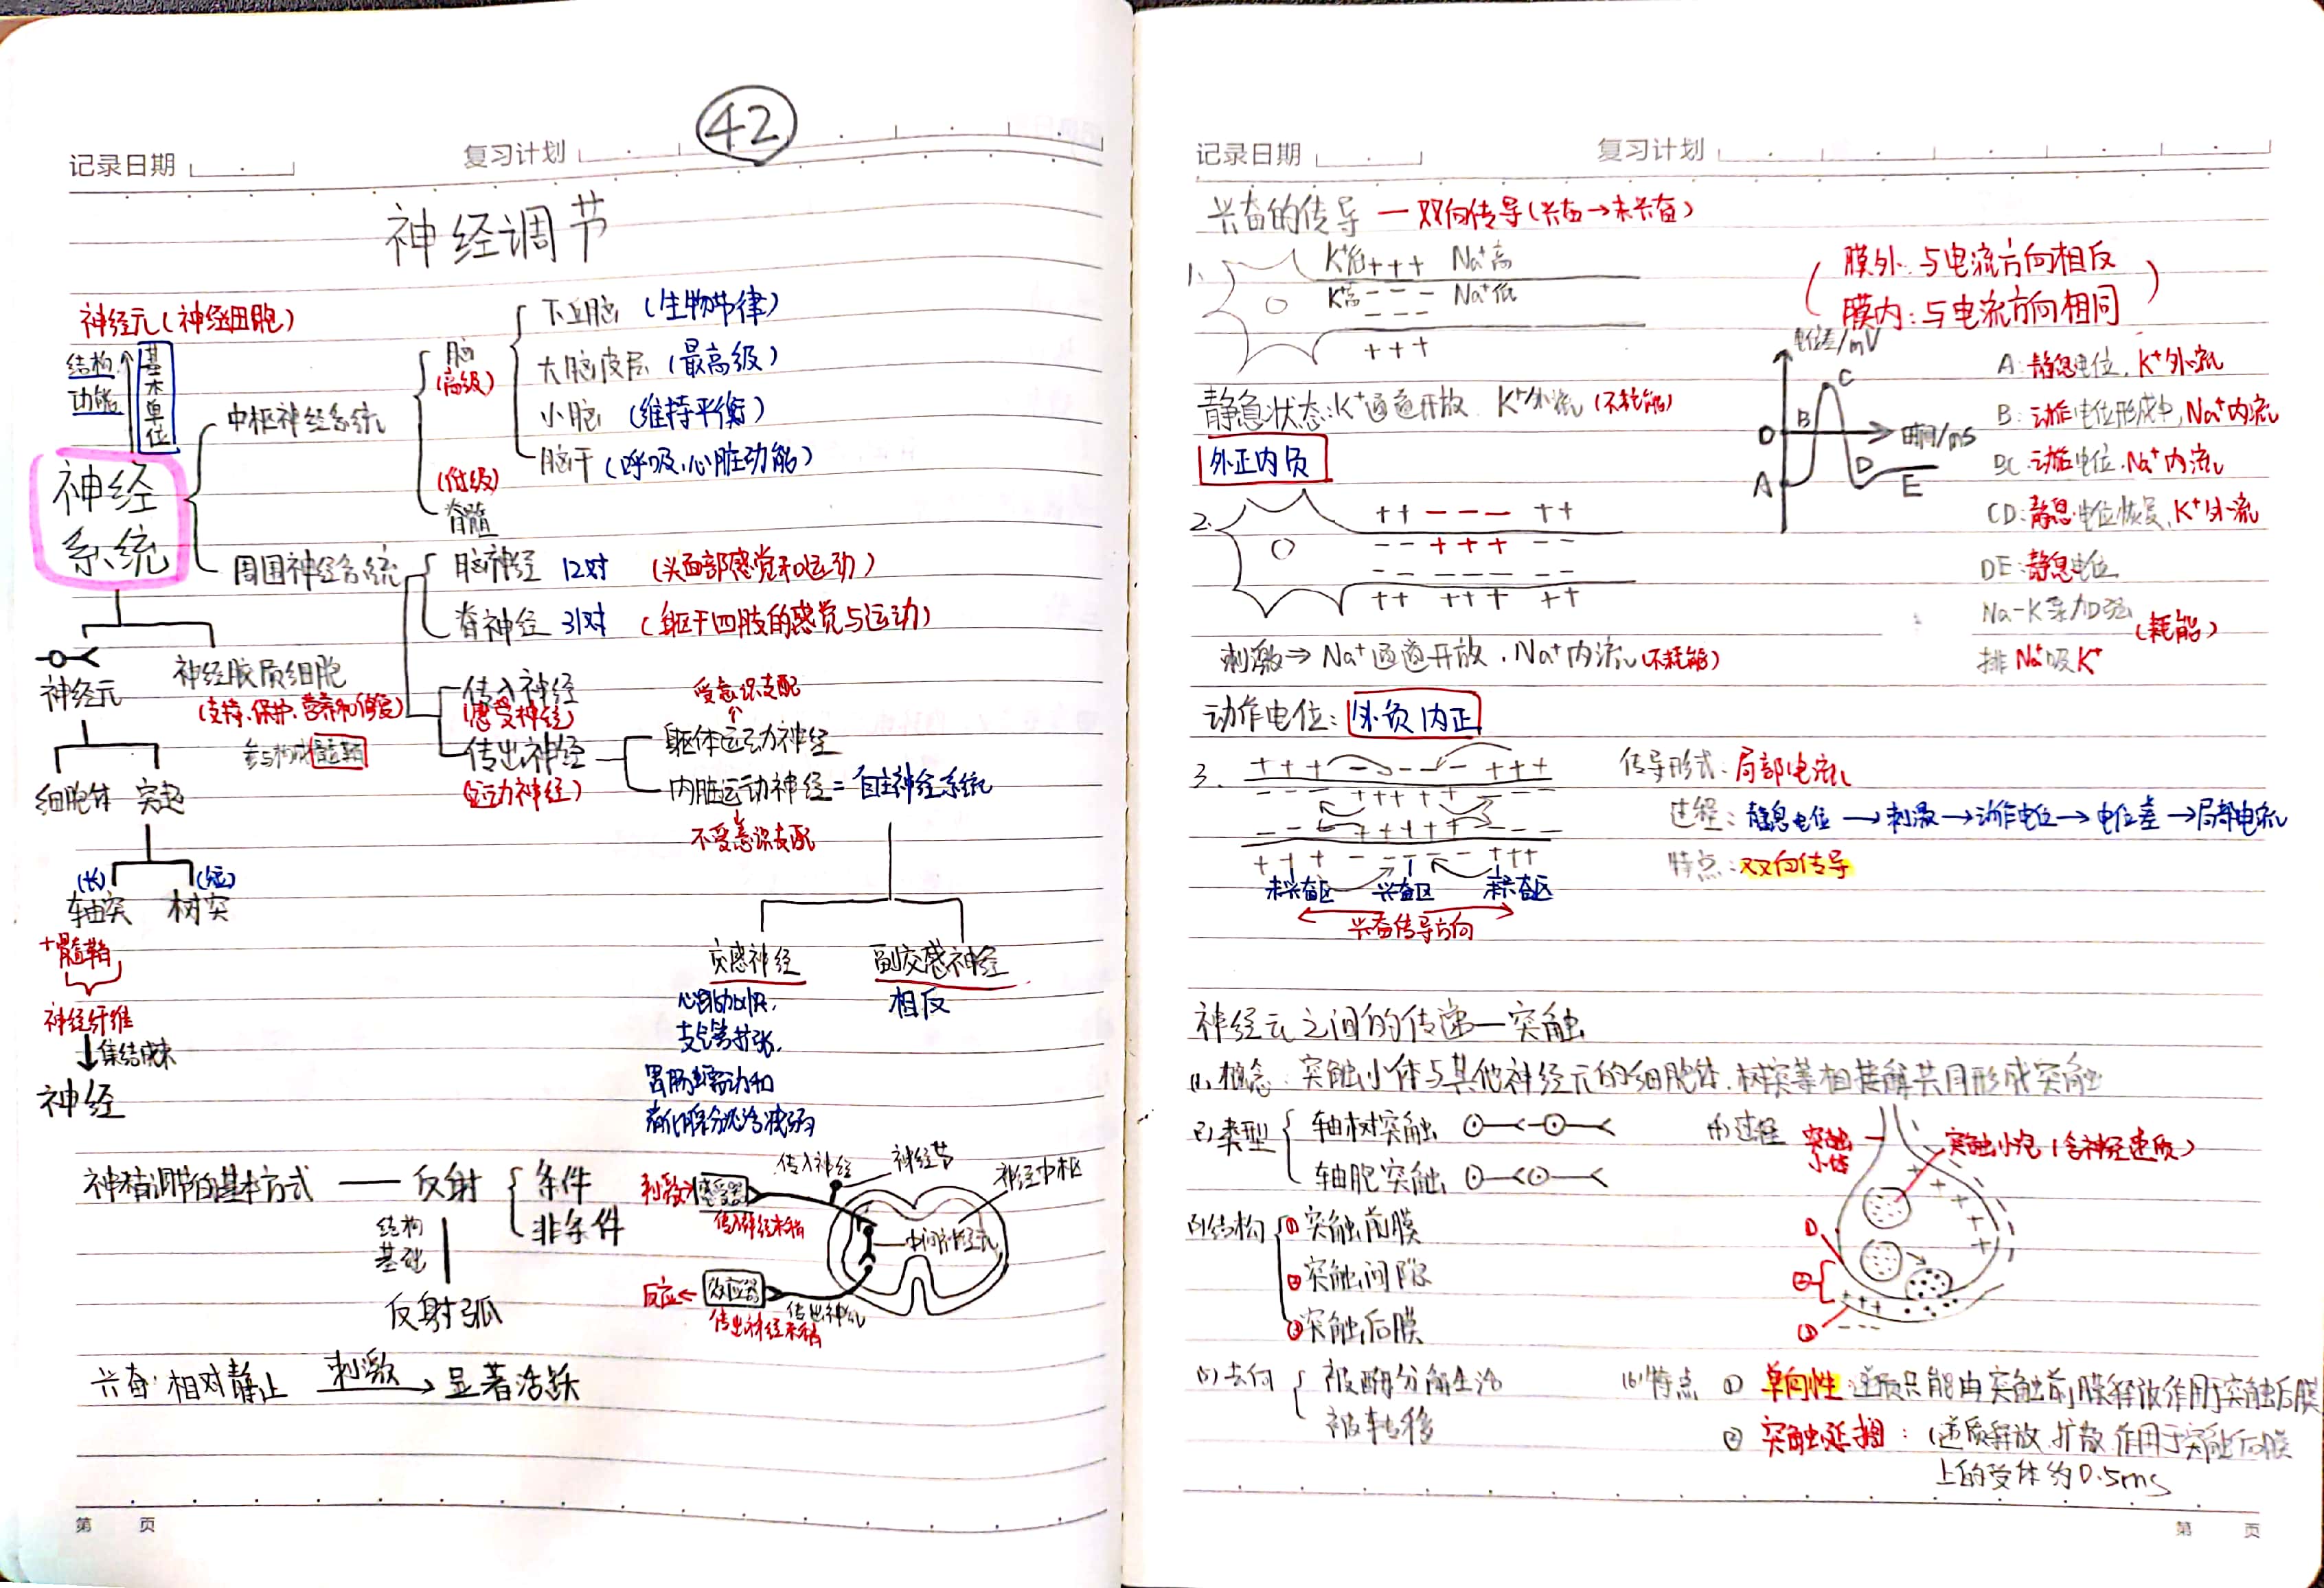 42
记录日期
复习计划
神经调节
神经元(神经细胞)
结构
功能
基本单位
神经
系统
中枢神经系统
脑
(高级)
下丘脑 (生物节律)
大脑皮层 (最高级)
小脑 (维持平衡)
脑干 (呼吸、心脏功能)
(低级)
脊髓
周围神经系统
脑神经 12对 (头面部感觉和运动)
脊神经 31对 (躯干四肢的感觉与运动)
传入神经
(感受神经)
传出神经
(运动神经)
受意识支配
躯体运动神经
内脏运动神经=自主神经系统
不受意识支配
交感神经
心跳加快,
支气管扩张,
胃肠蠕动和
消化腺分泌减弱
副交感神经
相反
神经元
神经胶质细胞
(支持、保护、营养和修复)
参与构成髓鞘
细胞体 突起
(长) (短)
轴突 树突
+髓鞘
神经纤维
集结成束
神经
神经调节的基本方式 — 反射
条件
非条件
结构
基础
反射弧
刺激→感受器
传入神经末梢
传入神经
神经节
神经中枢
中间神经元
反应←效应器
传出神经末梢
传出神经
兴奋:相对静止 刺激→ 显著活跃
第 页
记录日期
复习计划
兴奋的传导 — 双向传导(兴奋→未兴奋)
1.
K⁺低+++ Na⁺高
K⁺高--- Na⁺低
---
+++
(膜外:与电流方向相反
膜内:与电流方向相同)
静息状态:K⁺通道开放 K⁺外流 (不耗能)
外正内负
电位差/mV
时间/ms
0
A
B
C
D
E
A:静息电位, K⁺外流
B:动作电位形成中, Na⁺内流
BC:动作电位, Na⁺内流
CD:静息电位恢复, K⁺外流
DE:静息电位
Na-K泵加强
(耗能)
排Na⁺吸K⁺
2.
++ --- ++
-- +++ --
-- --- --
++ +++ ++
刺激⇒Na⁺通道开放, Na⁺内流(不耗能)
动作电位:外负内正
3.
+++ --- +++
--- +++++ ---
-- +++++ ---
+++ ---- +++
未兴奋区 兴奋区 未兴奋区
兴奋传导方向
传导形式:局部电流
过程:静息电位→刺激→动作电位→电位差→局部电流
特点:双向传导
神经元之间的传递—突触
(1)概念:突触小体与其他神经元的细胞体、树突等相接触共同形成突触
(2)类型
轴树突触
轴胞突触
(3)结构
①突触前膜
②突触间隙
③突触后膜
(4)过程
突触
小体
突触小泡(含神经递质)
①
②
③
(5)去向
被酶分解失活
被转移
(6)特点 ① 单向性:递质只能由突触前膜释放作用于突触后膜
② 突触延搁:(递质释放、扩散、作用于突触后膜
上的受体约0.5ms
第 页